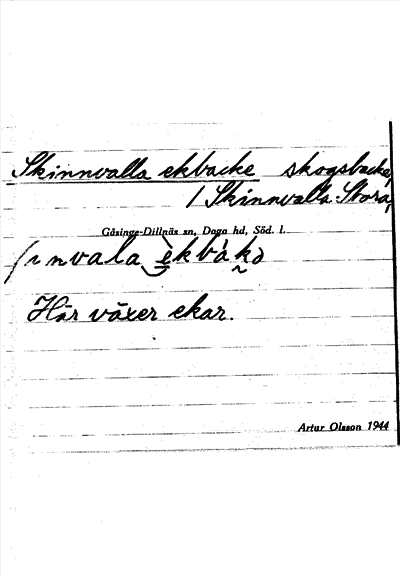 Skinnvalla ekbacke skogsbacke,
/ Skinnvalla: Stora,
Gåsinge-Dillnäs sn, Daga hd, Söd. l.
ʃinvala èkbàkə
Här växer ekar.
Artur Olsson 1944